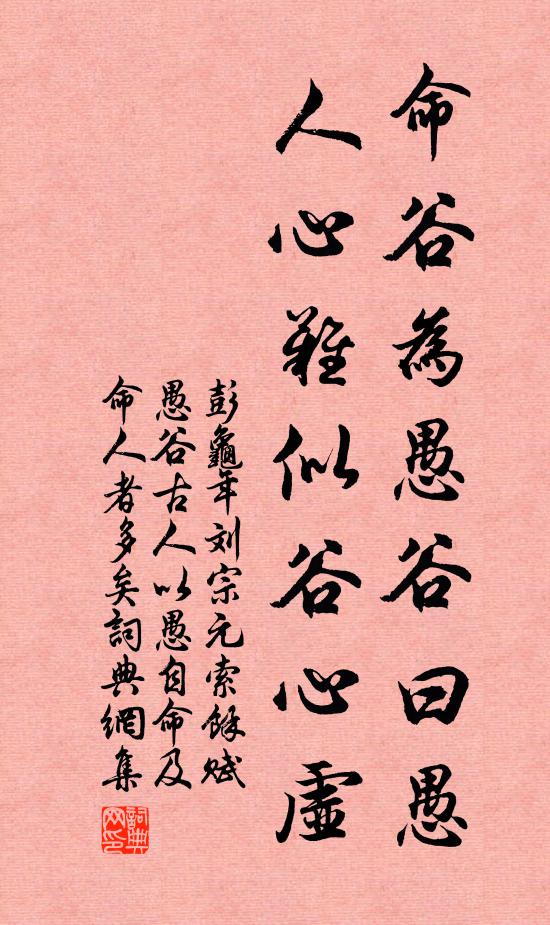 命谷為愚谷曰愚
人心難似谷心虛
彭龜年刘宗元索餘賦
愚谷古人以愚自命及
命人者多矣詞典網集
詞典网印